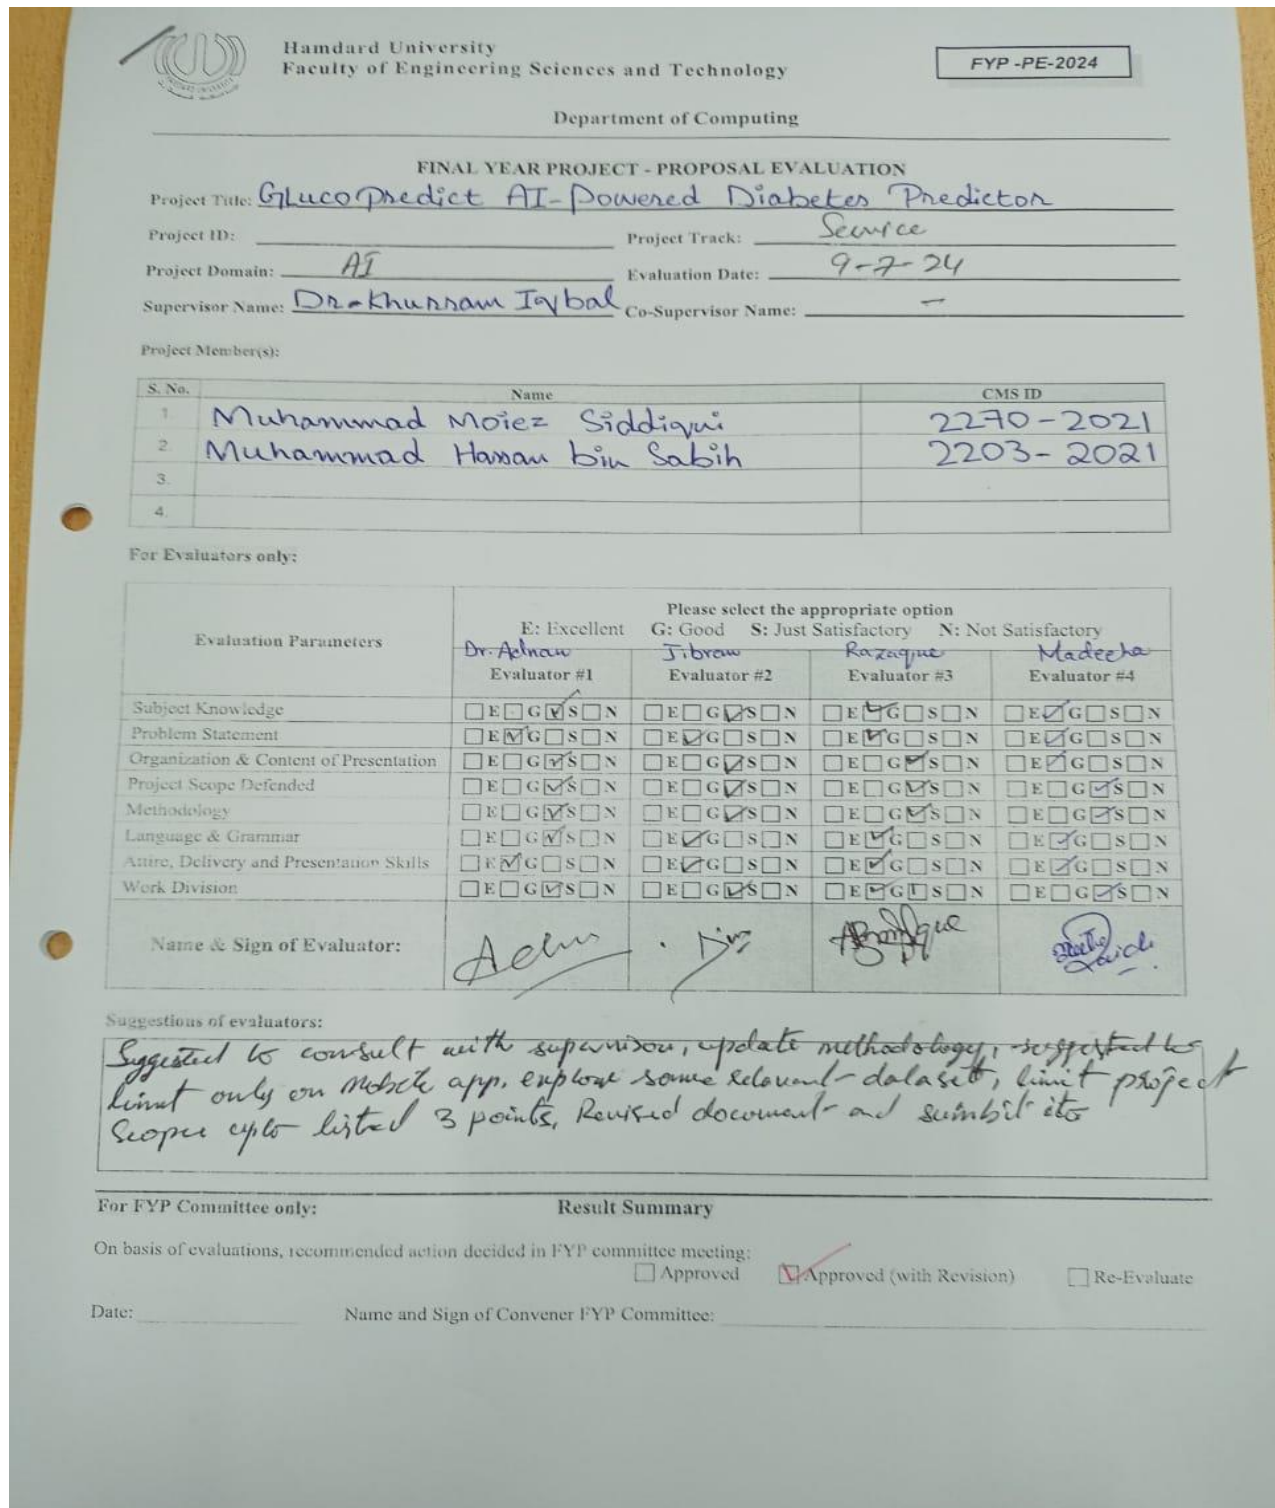 Hamdard University
Faculty of Engineering Sciences and Technology
FYP -PE-2024
Department of Computing
FINAL YEAR PROJECT - PROPOSAL EVALUATION
Project Title: GlucoPredict AI-Powered Diabetes Predictor
Project ID: Project Track: Service
Project Domain: AI Evaluation Date: 9-7-24
Supervisor Name: Dr-Khurram Iqbal Co-Supervisor Name: -
Project Member(s):
S. No. Name CMS ID
1. Muhammad Moiez Siddiqui 2270-2021
2. Muhammad Hassan bin Sabih 2203-2021
3.
4.
For Evaluators only:
Please select the appropriate option
Evaluation Parameters E: Excellent G: Good S: Just Satisfactory N: Not Satisfactory
Dr. Adnan Jibran Razaque Madeeha
Evaluator #1 Evaluator #2 Evaluator #3 Evaluator #4
Subject Knowledge E G S N E G S N E G S N E G S N
Problem Statement E G S N E G S N E G S N E G S N
Organization & Content of Presentation E G S N E G S N E G S N E G S N
Project Scope Defended E G S N E G S N E G S N E G S N
Methodology E G S N E G S N E G S N E G S N
Language & Grammar E G S N E G S N E G S N E G S N
Attire, Delivery and Presentation Skills E G S N E G S N E G S N E G S N
Work Division E G S N E G S N E G S N E G S N
Name & Sign of Evaluator:
Suggestions of evaluators:
Suggested to consult with supervisor, update methodology, suggested to
limit only on mobile app, explore some relevant datasets, limit project
Scope upto listed 3 points, Revised document and
For FYP Committee only: Result Summary
On basis of evaluations, recommended action decided in FYP committee meeting:
Approved Approved (with Revision) Re-Evaluate
Date: Name and Sign of Convener FYP Committee: